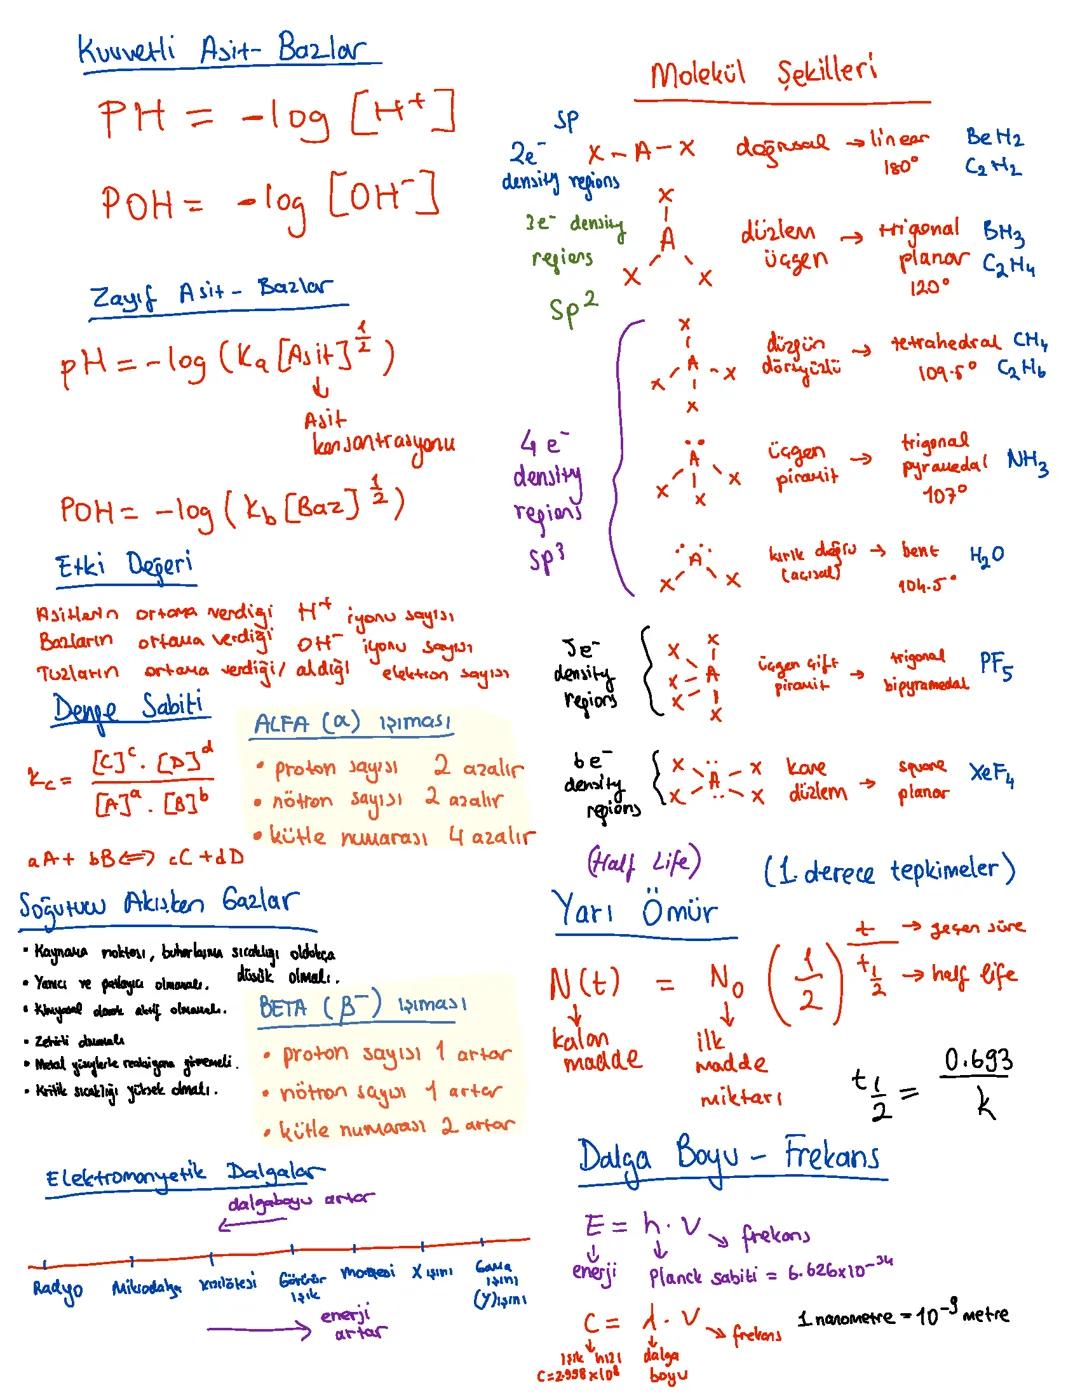 Kuvvetli Asit-Bazlar
PH = -log [H⁺]
POH = -log [OH⁻]
Zayıf Asit-Bazlar
pH = -log (Ka [Asit]^1/2)
↓
Asit
konsantrasyonu
POH = -log (Kb [Baz]^1/2)
Etki Değeri
Asitlerin ortama verdiği H⁺ iyonu sayısı
Bazların ortama verdiği OH⁻ iyonu sayısı
Tuzların ortama verdiği/aldığı elektron sayısı
Denge Sabiti
Kc = [C]^c . [D]^d / [A]^a . [B]^b
aA + bB ⇔ cC + dD
ALFA (α) ışıması
• proton sayısı 2 azalır
• nötron sayısı 2 azalır
• kütle numarası 4 azalır
Soğutucu Akışkan Gazlar
• Kaynama noktası, buharlaşma sıcaklığı oldukça
düşük olmalı.
• Yanıcı ve patlayıcı olmamalı.
• Kimyasal olarak aktif olmamalı.
• Zehirli olmamalı
• Metal yüzeylerle reaksiyona girmemeli.
• Kritik sıcaklığı yüksek olmalı.
BETA (β⁻) ışıması
• proton sayısı 1 artar
• nötron sayısı 1 artar
• kütle numarası 2 artar
Elektromanyetik Dalgalar
dalgaboyu artar
←
Radyo Mikrodalga kızılötesi Görünür ışık morötesi X ışını Gama ışını (γ)ışını
→ enerji
artar
Molekül Şekilleri
sp
2e⁻
density regions
X-A-X doğrusal → linear
180°
BeH₂
C₂H₂
3e⁻ density
regions
sp²
X
A
X X
düzlem
üçgen
→ trigonal
planar
120°
BH₃
C₂H₄
4e⁻
density
regions
sp³
X
X A X
X
düzgün
dörtyüzlü
→ tetrahedral
109.5°
CH₄
C₂H₆
A
X X X
üçgen
piramit
→ trigonal
pyramedal
107°
NH₃
A
X X
kırık doğru
(açısal)
→ bent
104.5°
H₂O
5e⁻
density
regions
X X
X A
X X
üçgen çift
piramit
→ trigonal
bipyramedal
PF₅
6e⁻
density
regions
X A X
X X
kare
düzlem
→ square
planar
XeF₄
(Half Life)
(1. derece tepkimeler)
Yarı Ömür
N(t) = N₀ (1/2)^t/t½
t → geçen süre
t½ → half life
↓
kalan
madde
↓
ilk
madde
miktarı
t½ = 0.693 / k
Dalga Boyu - Frekans
E = h . V → frekans
↓ ↓
enerji Planck sabiti = 6.626x10⁻³⁴
C = λ . V → frekans
1 nanometre = 10⁻⁹ metre
ışık hızı
C=2.998x10⁸
dalga
boyu